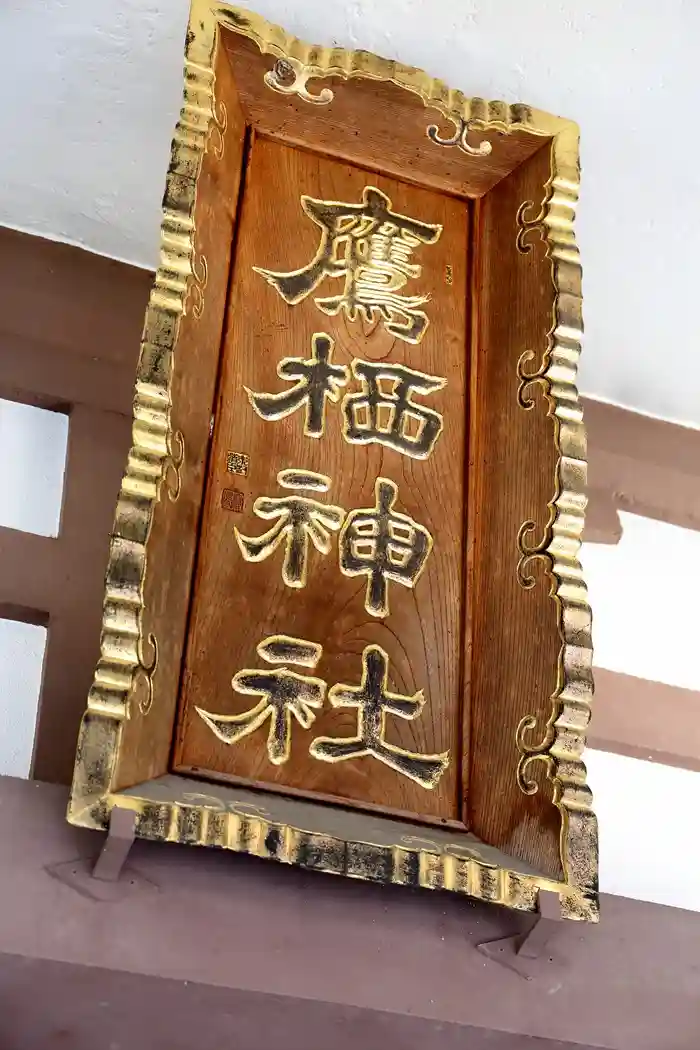 鷹栖神社